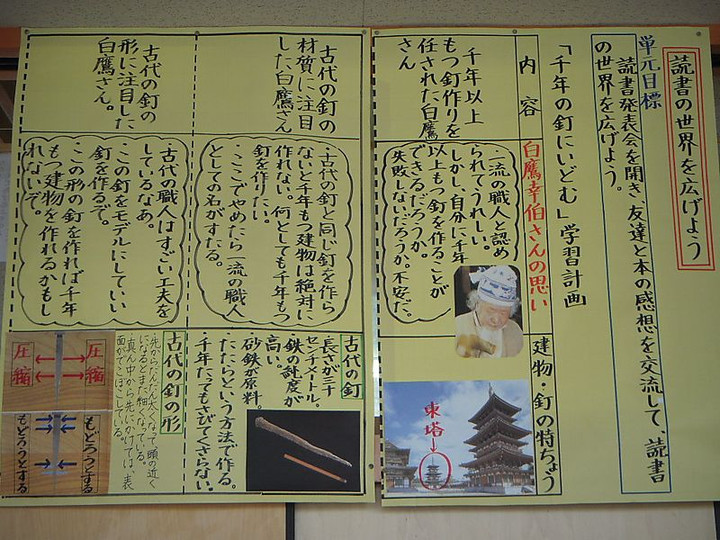 読書の世界を広げよう
単元目標
読書発表会を開き、友達と本の感想を交流して、読書
の世界を広げよう。
「千年の釘にいどむ」学習計画
内容
白鷹幸伯さんの思い
建物・釘の特ちょう
千年以上
もつ釘作りを
任された白鷹
さん
・一流の職人と認め
られてうれしい。
しかし、自分に千年
以上もつ釘を作ることが
できるだろうか。
失敗しないだろうか。不安だ。
東塔
古代の釘の
材質に注目
した白鷹さん
・古代の釘と同じ釘を作ら
ないと千年もつ建物は絶対に
作れない。何としても千年もつ
釘を作りたい。
・ここでやめたら一流の職人
としての名がすたる。
古代の釘
・長さが三十
センチメートル。
・鉄の純度が
高い。
・砂鉄が原料。
・たたらという方法で作る。
・千年たってもさびてくさらない。
古代の釘の
形に注目した
白鷹さん。
・古代の職人はすごい工夫を
しているなあ。
・この釘をモデルにしていい
釘を作るぞ。
・この形の釘を作れば千年
もつ建物を作れるかもし
れないぞ。
古代の釘の形
・先からだんだん太くなって、頭の近く
になるとまた細くなっている。
・真ん中から先にかけては、表
面がでこぼこしている。
圧縮
圧縮
もどろうとする
もどろうとする